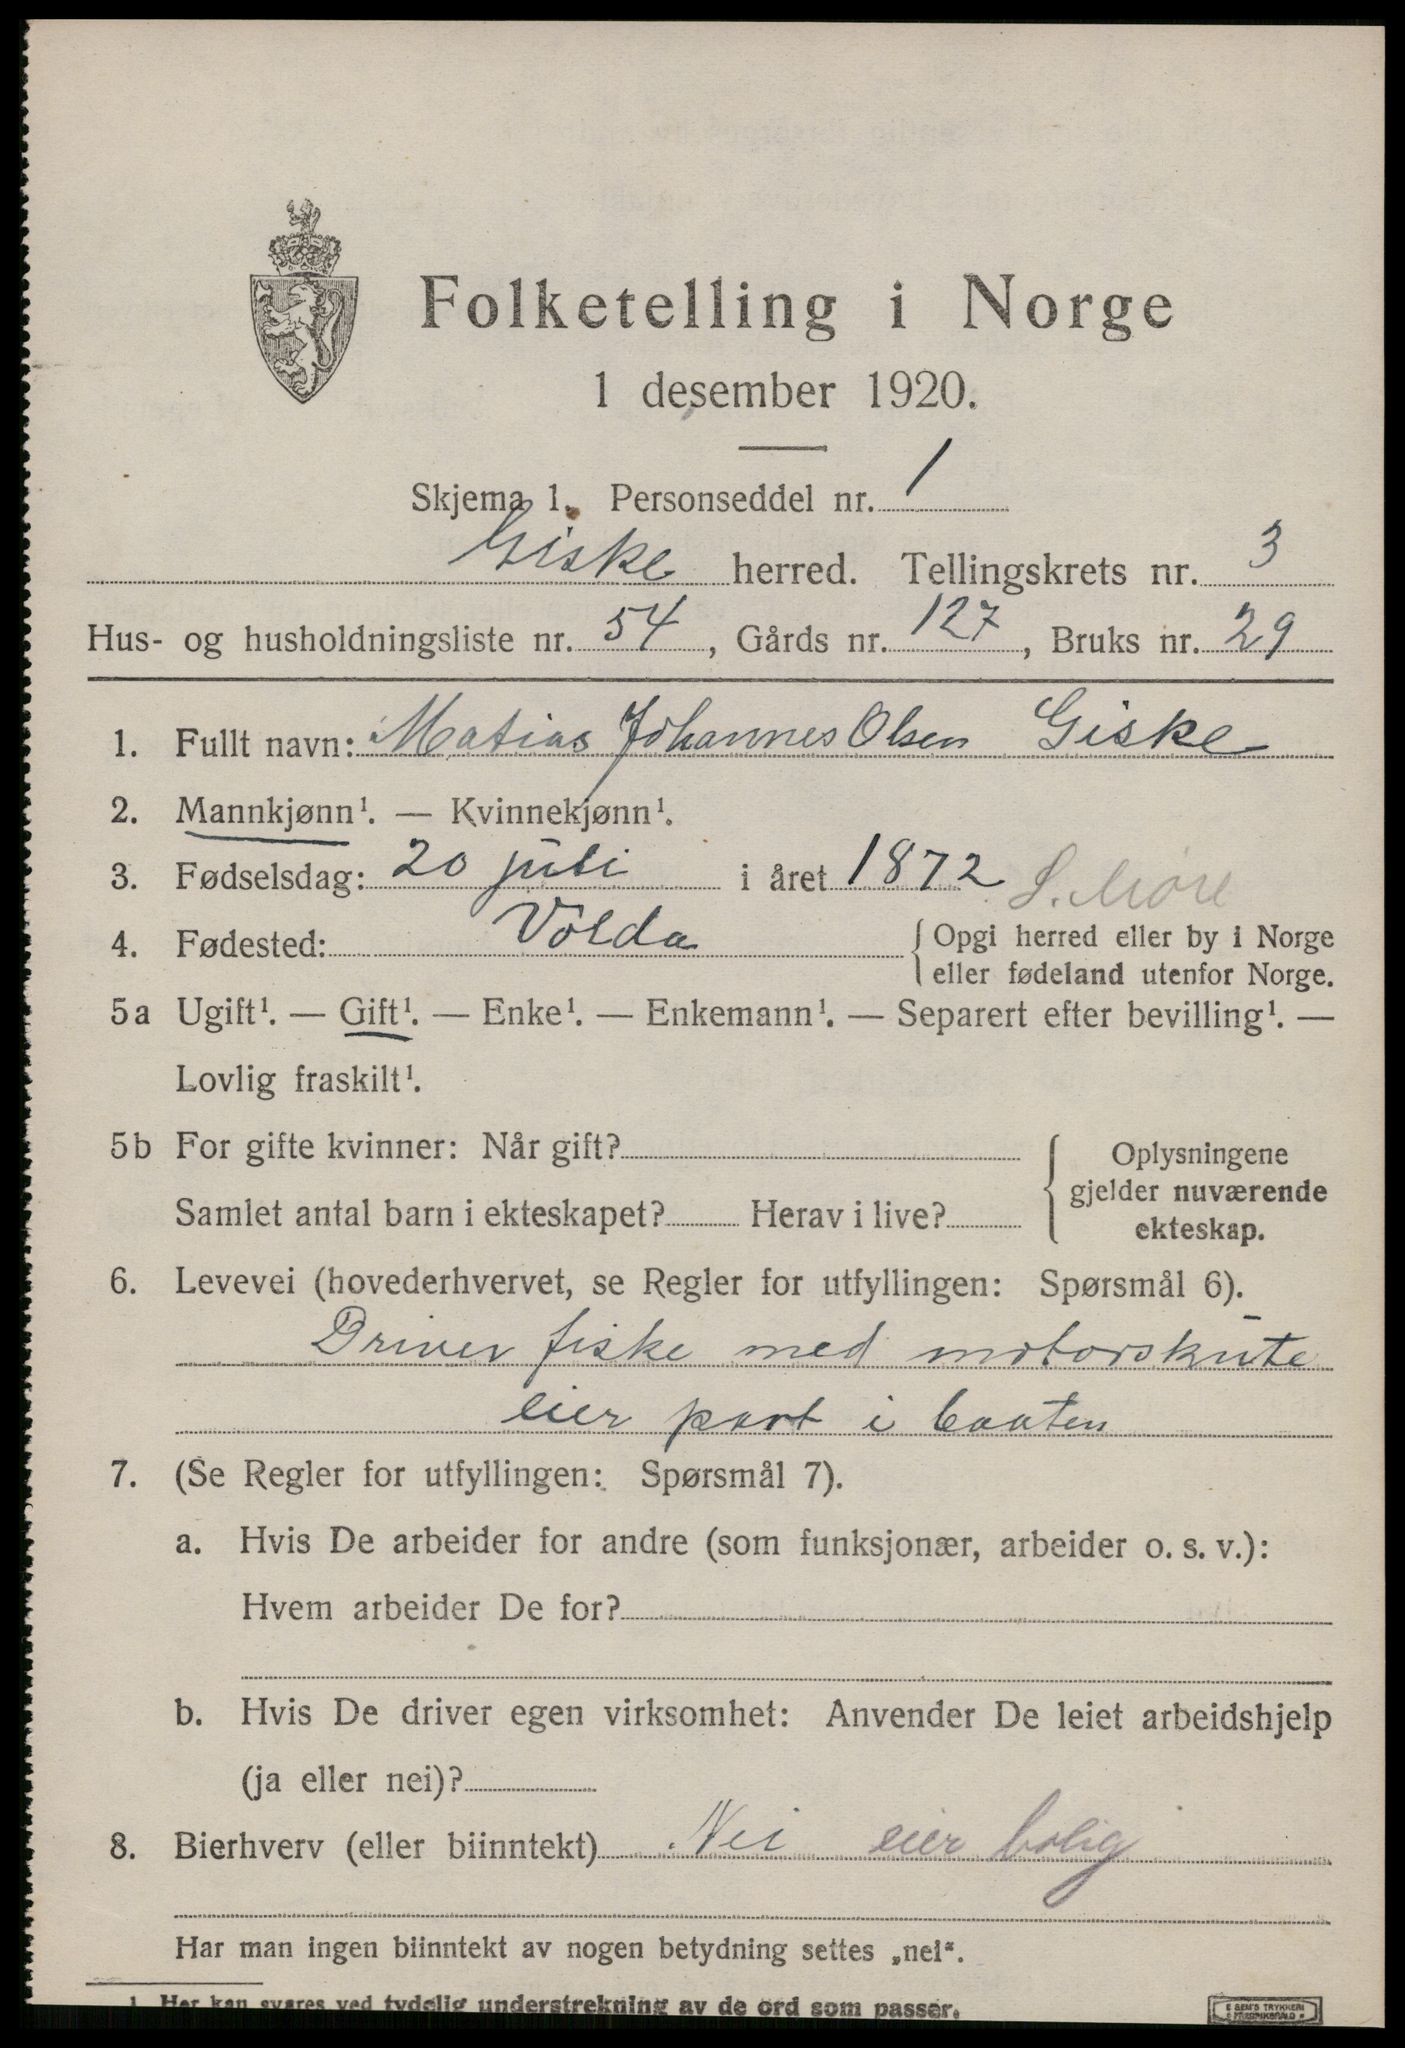 Folketelling i Norge
1 desember 1920.
Skjema 1. Personseddel nr. 1
Giske herred. Tellingskrets nr. 3
Hus- og husholdningsliste nr. 54, Gårds nr. 127, Bruks nr. 29
1. Fullt navn: Matias Johannes Olsen Giske
2. Mannkjønn¹. — Kvinnekjønn¹.
3. Fødselsdag: 20 juli i året 1872 S. Møre
4. Fødested: Volda { Opgi herred eller by i Norge
eller fødeland utenfor Norge.
5a Ugift¹. — Gift¹. — Enke¹. — Enkemann¹. — Separert efter bevilling¹. —
Lovlig fraskilt¹.
5b For gifte kvinner: Når gift? { Oplysningene
gjelder nuværende
Samlet antal barn i ekteskapet? Herav i live?
ekteskap.
6. Levevei (hovederhvervet, se Regler for utfyllingen: Spørsmål 6).
Driver fiske med motorskute
eier part i baaten
7. (Se Regler for utfyllingen: Spørsmål 7).
a. Hvis De arbeider for andre (som funksjonær, arbeider o. s. v.):
Hvem arbeider De for?
b. Hvis De driver egen virksomhet: Anvender De leiet arbeidshjelp
(ja eller nei)?
8. Bierhverv (eller biinntekt) Nei eier bolig
Har man ingen biinntekt av nogen betydning settes „nei“.
1 Her kan svares ved tydelig understrekning av de ord som passer.